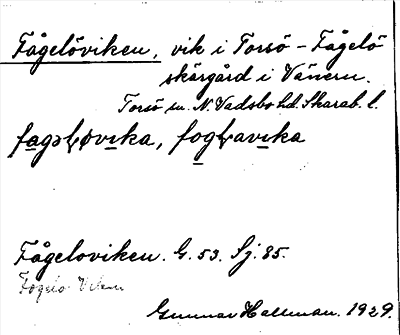 Fågelöviken, vik i Torsö - Fågelö
skärgård i Vänern.
Torsö sn. N. Vadsbo hd. Skarab. l.
fagəløvika, foglavika
Fågeloviken. G. 53. Sj. 85.
Fogelö Viken
Gunnar Hallman. 1929.